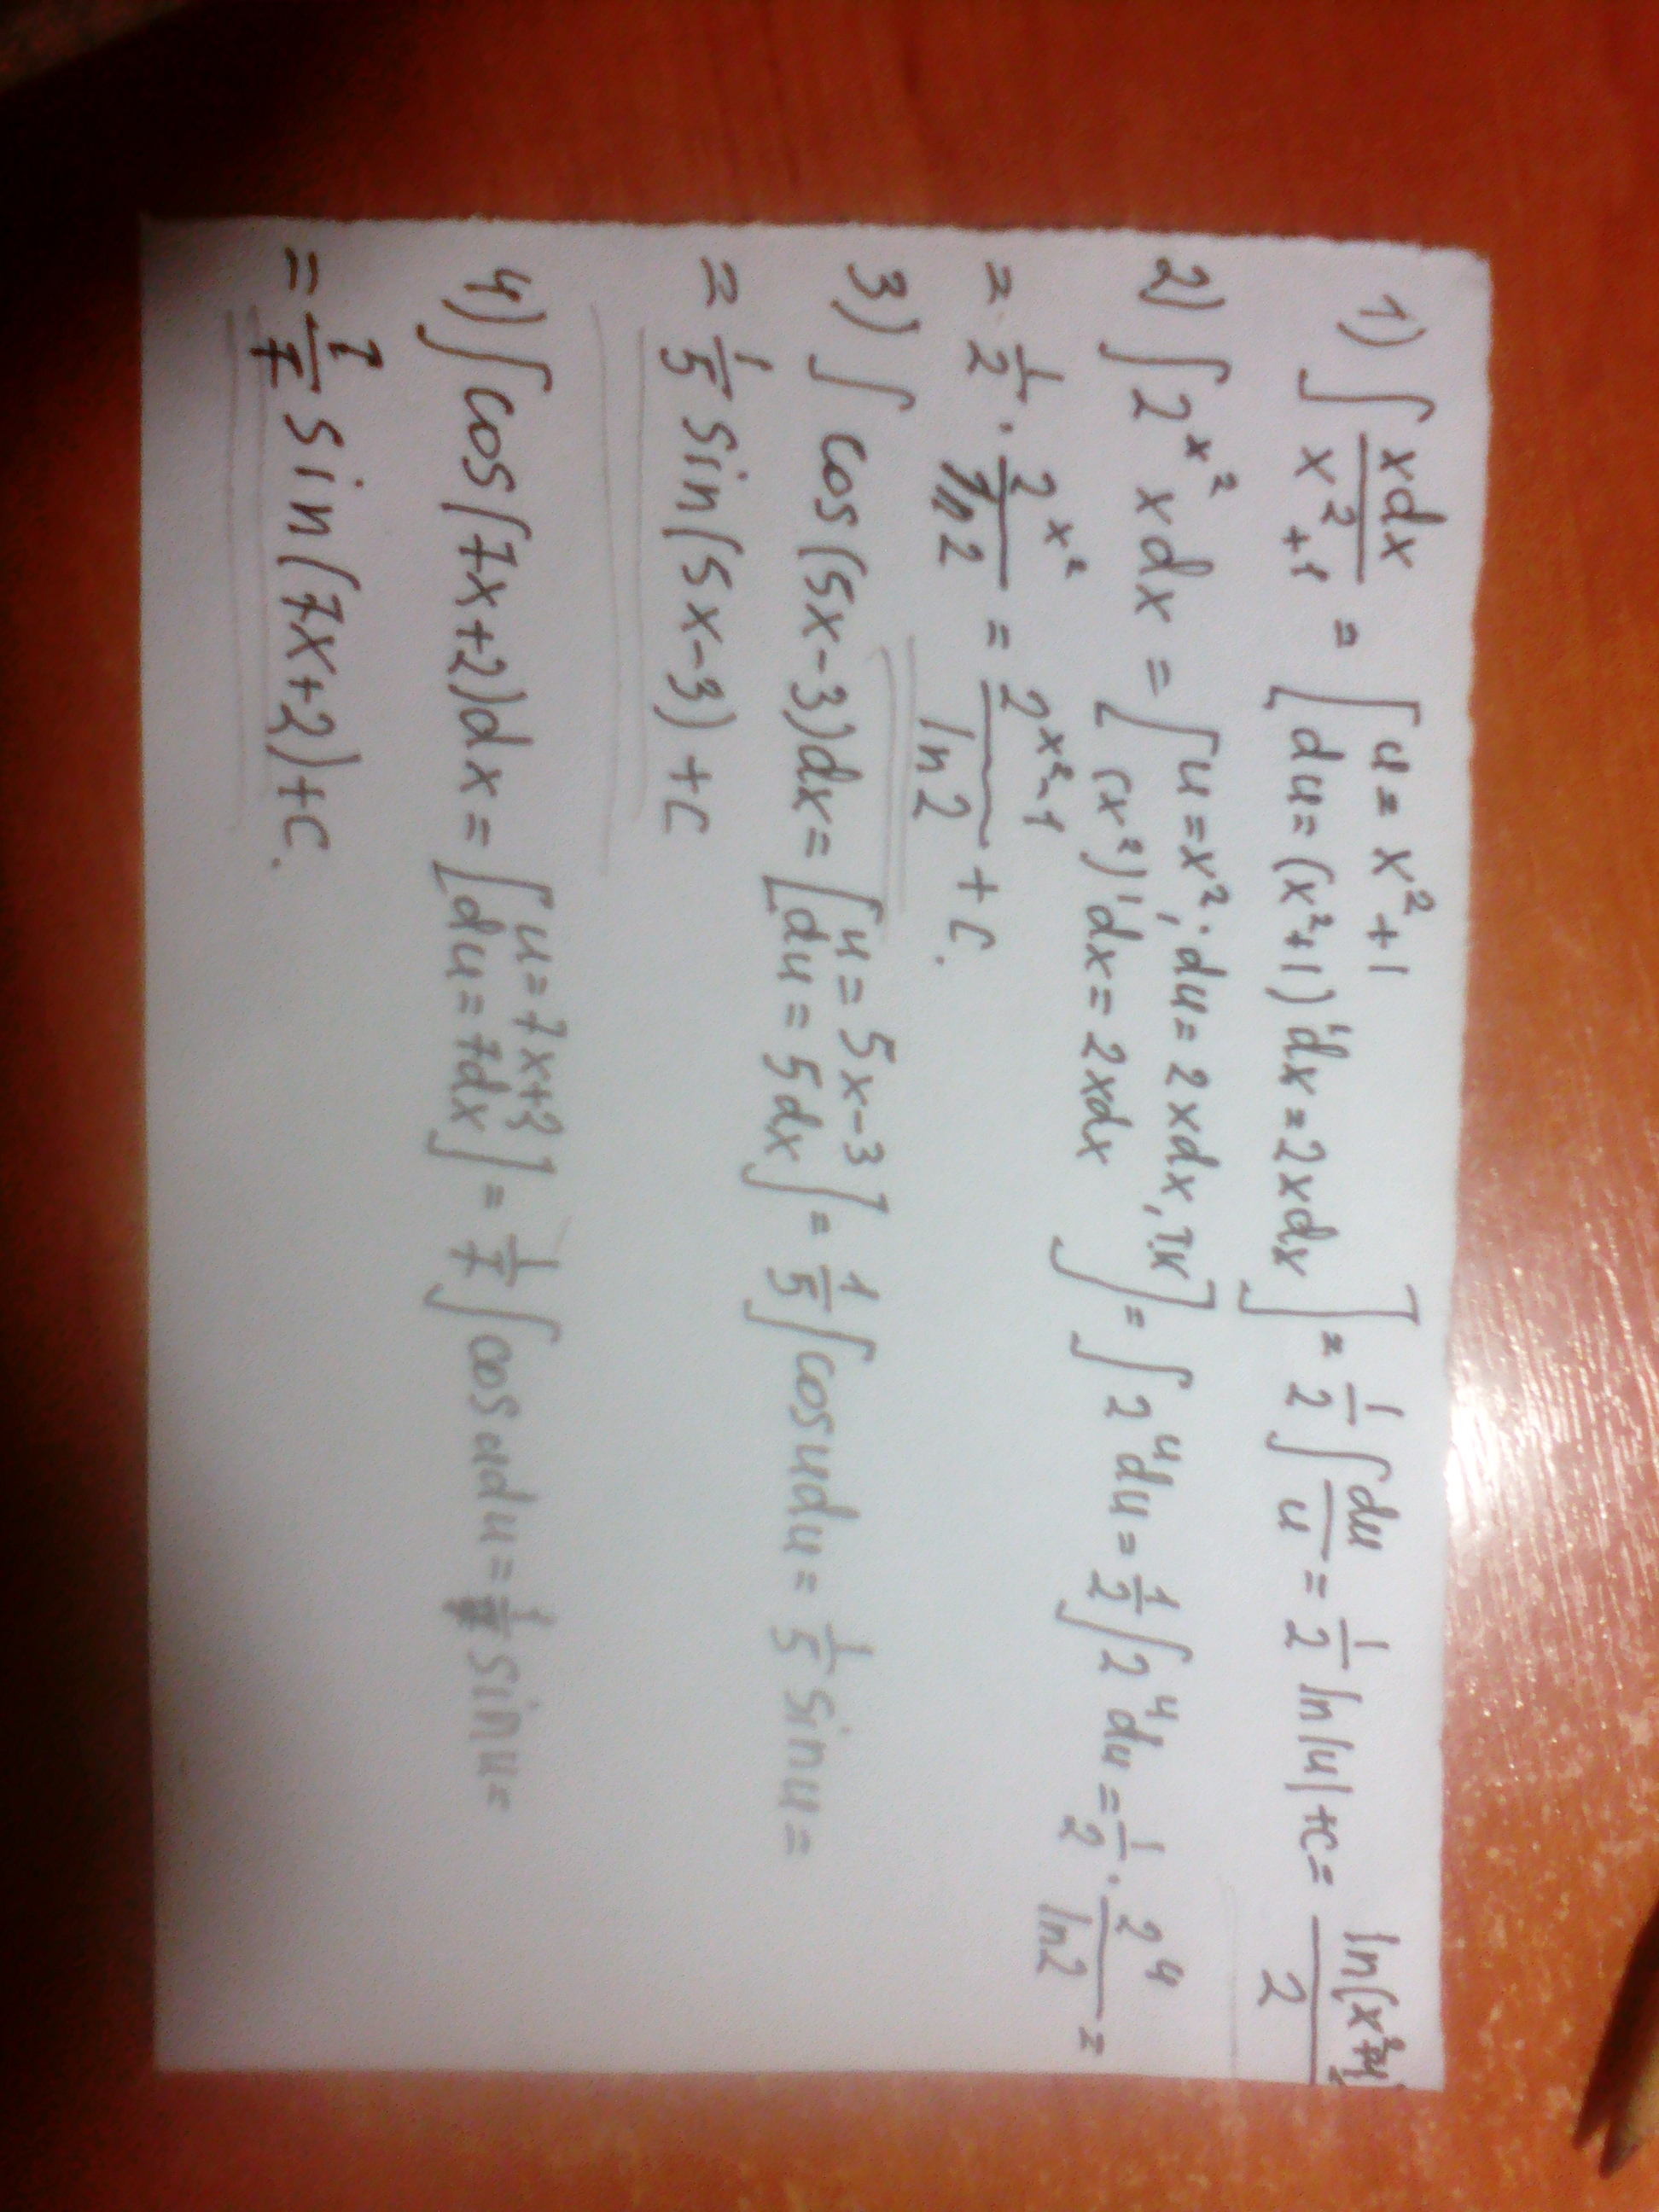 1) ∫ xdx/(x²+1) = [u = x²+1
du = (x²+1)'dx = 2xdx] = 1/2 ∫ du/u = 1/2 ln|u| + c = ln(x²+1)/2
2) ∫ 2^(x²) xdx = [u = x²; du = 2xdx, т.к
(x²)'dx = 2xdx] = ∫ 2^u du = 1/2 ∫ 2^u du = 1/2 · 2^u/ln2 =
= 1/2 · 2^(x²)/ln2 = 2^(x²-1)/ln2 + c.
3) ∫ cos(5x-3)dx = [u = 5x-3
du = 5dx] = 1/5 ∫ cosudu = 1/5 sinu =
= 1/5 sin(5x-3) + c
4) ∫ cos(7x+2)dx = [u = 7x+2
du = 7dx] = 1/7 ∫ cosudu = 1/7 sinu =
= 1/7 sin(7x+2) + c.